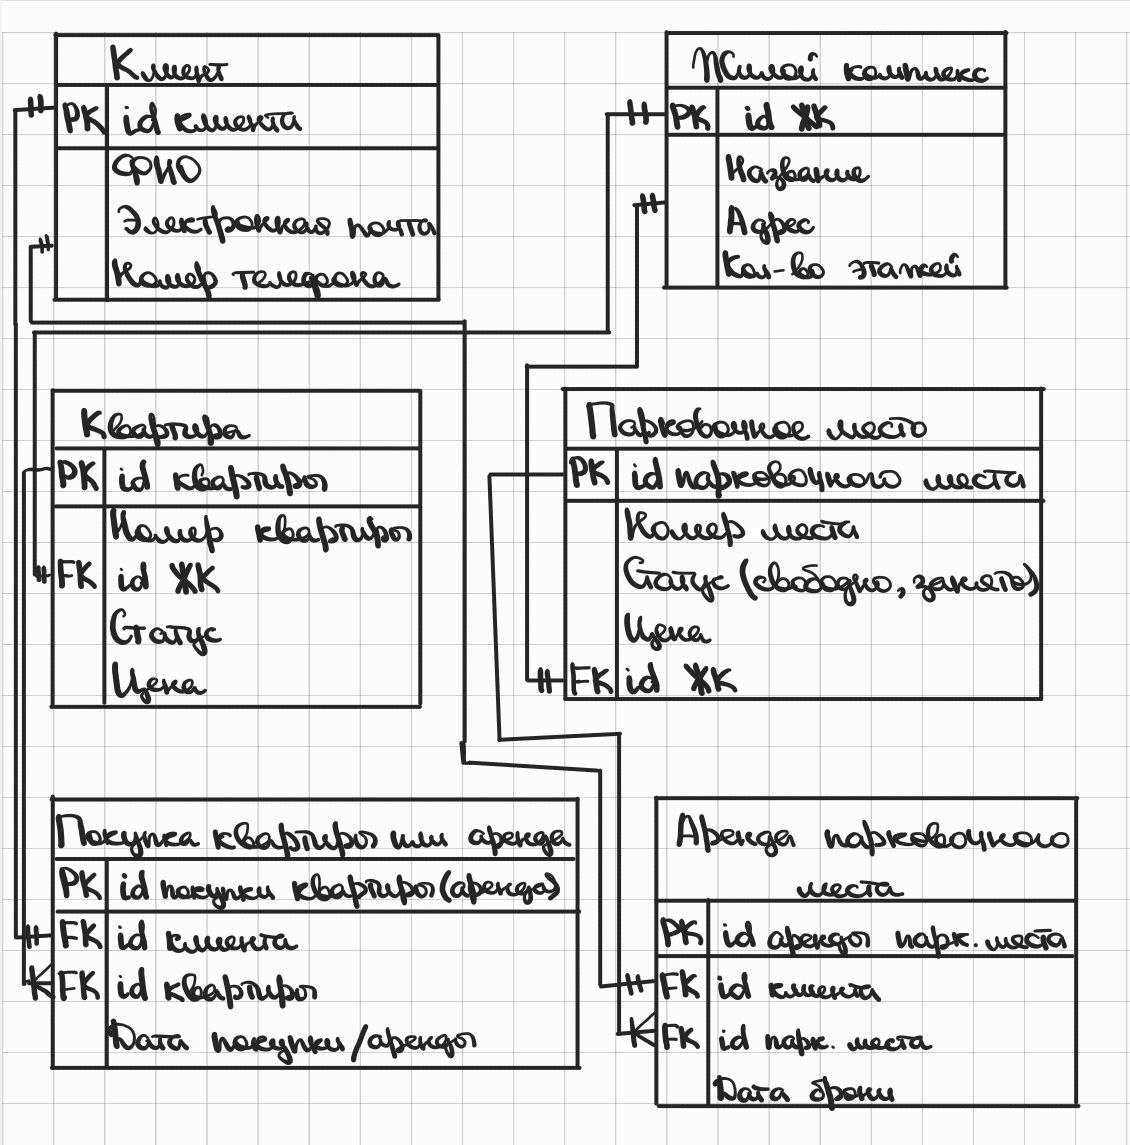 Клиент
PK id клиента
ФИО
Электронная почта
Номер телефона
Жилой комплекс
PK id ЖК
Название
Адрес
Кол-во этажей
Квартира
PK id квартиры
Номер квартиры
FK id ЖК
Статус
Цена
Парковочное место
PK id парковочного места
Номер места
Статус (свободно, занято)
Цена
FK id ЖК
Покупка квартиры или аренда
PK id покупки квартиры (аренда)
FK id клиента
FK id квартиры
Дата покупки/аренды
Аренда парковочного
места
PK id аренды парк. места
FK id клиента
FK id парк. места
Дата брони